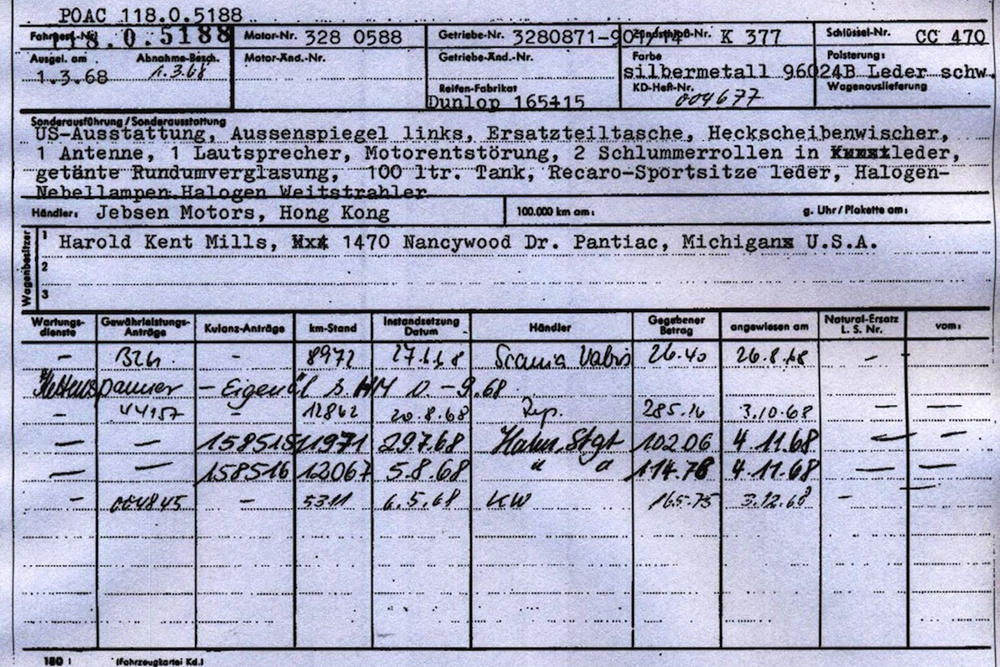 POAC 118.0.5188
Fahrgest.-Nr. 118.0.5188 Motor-Nr. 328 0588 Getriebe-Nr. 3280871-901/ Zündschloß-Nr. K 377 Schlüssel-Nr. CC 470
Ausgel. am Abnahme-Besch. Motor-Änd.-Nr. Getriebe-Änd.-Nr. Farbe Polsterung:
1.3.68 1.3.68 silbermetall 96024B Leder schw.
Reifen-Fabrikat KD-Heft-Nr. Wagenauslieferung
Dunlop 165415 004677
Sonderausführung/Sonderausstattung
US-Ausstattung, Aussenspiegel links, Ersatzteiltasche, Heckscheibenwischer,
1 Antenne, 1 Lautsprecher, Motorentstörung, 2 Schlummerrollen in leder,
getänte Rundumverglasung, 100 ltr. Tank, Recaro-Sportsitze leder, Halogen-
Nebellampen Halogen Weitstrahler
Händler: Jebsen Motors, Hong Kong 100.000 km am: g. Uhr/Plakette am:
Wagenbesitzer
1 Harold Kent Mills, 1470 Nancywood Dr. Pantiac, Michigan U.S.A.
2
3
Wartungs-dienste Gewährleistungs-Anträge Kulanz-Anträge km-Stand Instandsetzung Datum Händler Gegebener Betrag angewiesen am Natural-Ersatz L. S. Nr. vom:
- - 8972 Scania Vabis 26.40 26.8.68 -
- Eigenöl 9.68
- 44157 12862 20.8.68 Rep. 285.16 3.10.68 - -
- - 158515 11971 29.7.68 Hahn, Stgt 102.06 4.11.68 - -
- - 158516 12067 5.8.68 " " 114.78 4.11.68 - -
- 004845 - 5311 6.5.68 KW 165.75 3.12.68 -
180 1 (Fahrzeugkartei Kd.)